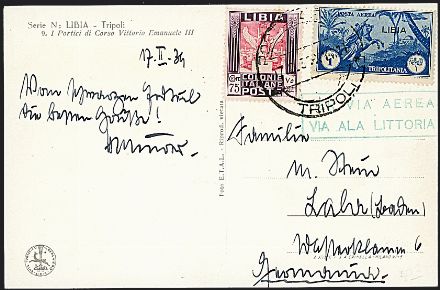 Serie N: LIBIA - Tripoli
9. I Portici di Corso Vittorio Emanuele III
17. II. 39
Vom schwarzen Erdteil
die besten Grüße!
Familie
M. Stein
Lahr (Baden)
Germania
LIBIA
Cmi 75
COLONIE
ITALIANE
POSTE
POSTA AEREA
LIBIA
TRIPOLITANIA
TRIPOLI
VIA AEREA
VIA ALA LITTORIA
Foto E.T.A.L. - Riprod. vietata